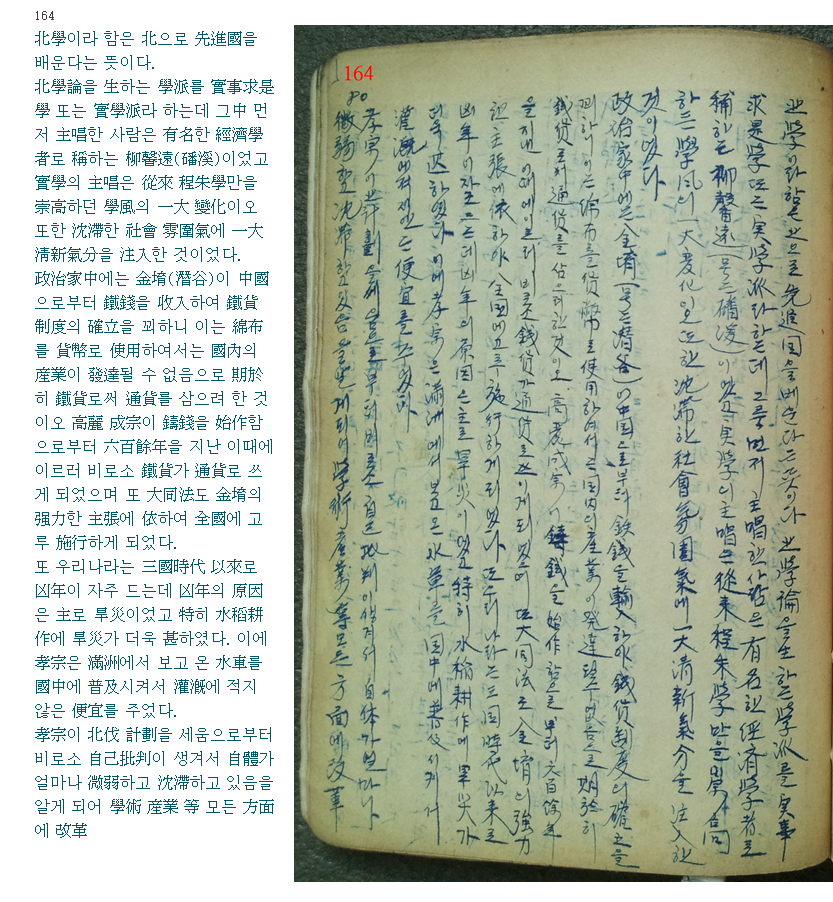 164
北學이라 함은 北으로 先進國을
배운다는 뜻이다.
北學論을 生하는 學派를 實事求是
學 또는 實學派라 하는데 그中 먼
저 主唱한 사람은 有名한 經濟學
者로 稱하는 柳馨遠(磻溪)이었고
實學의 主唱은 從來 程朱學만을
崇高하던 學風의 一大 變化이오
또한 沈滯한 社會 雰圍氣에 一大
淸新氣分을 注入한 것이었다.
政治家中에는 金堉(潛谷)이 中國
으로부터 鐵錢을 收入하여 鐵貨
制度의 確立을 꾀하니 이는 綿布
를 貨幣로 使用하여서는 國內의
産業이 發達될 수 없음으로 期於
히 鐵貨로써 通貨를 삼으려 한 것
이오 高麗 成宗이 鑄錢을 始作함
으로부터 六百餘年을 지난 이때에
이르러 비로소 鐵貨가 通貨로 쓰
게 되었으며 또 大同法도 金堉의
强力한 主張에 依하여 全國에 고
루 施行하게 되었다.
또 우리나라는 三國時代 以來로
凶年이 자주 드는데 凶年의 原因
은 主로 旱災이었고 特히 水稻耕
作에 旱災가 더욱 甚하였다. 이에
孝宗은 滿洲에서 보고 온 水車를
國中에 普及시켜서 灌漑에 적지
않은 便宜를 주었다.
孝宗이 北伐 計劃을 세움으로부터
비로소 自己批判이 생겨서 自體가
얼마나 微弱하고 沈滯하고 있음을
알게 되어 學術 産業 等 모든 方面
에 改革
164
北學이라함은 北으로 先進国을 배운다는 뜻이다 北學論을 生하는 學派를 実事
求是學 또는 実學派라 하는데 그中 먼저 主唱한 사람은 有名한 經済學者로
稱하는 柳馨遠(号는 磻溪)이였고 実學의 主唱은 從來 程朱学만을 崇高
하든 學風의 一大変化이오 또한 沈滞한 社會雰囲氣에 一大清新氣分을 注入한
것이였다
政治家中에는 金堉(号는 潛谷)이 中国으로부터 鉄錢을 輸入하야 錢貨制度의 確立을
꾀하니 이는 綿布를 貨幣로 使用하여서는 国内의 産業이 発達될수없음으로 期於히
錢貨로써 通貨를 삼으려한것이오 高麗成宗이 鑄錢을 始作함으로부터 六百余年
을지낸 이때에이르러 비로소 錢貨가 通貨로 쓰이게되였으며 또 大同法도 金堉의 強力
한 主張에 依하야 全国에 고루 施行하게되였다 또 우리나라는 三国時代以來로
凶年이 자조 드는데 凶年의 原因은 主로 旱災이였고 特히 水稻耕作에 旱災가
더욱 甚하였다 이에 孝宗은 滿洲에서 보고온 水車를 国中에 普及시켜서
灌漑에 적지않은 便宜를 주었다
孝宗이 北伐計劃을 세움으로부터 비로소 自己批判이생겨서 自体가 얼마나
微弱하고 沈滞하고있음을 알게되어 學術産業等 모든 方面에 改革
80